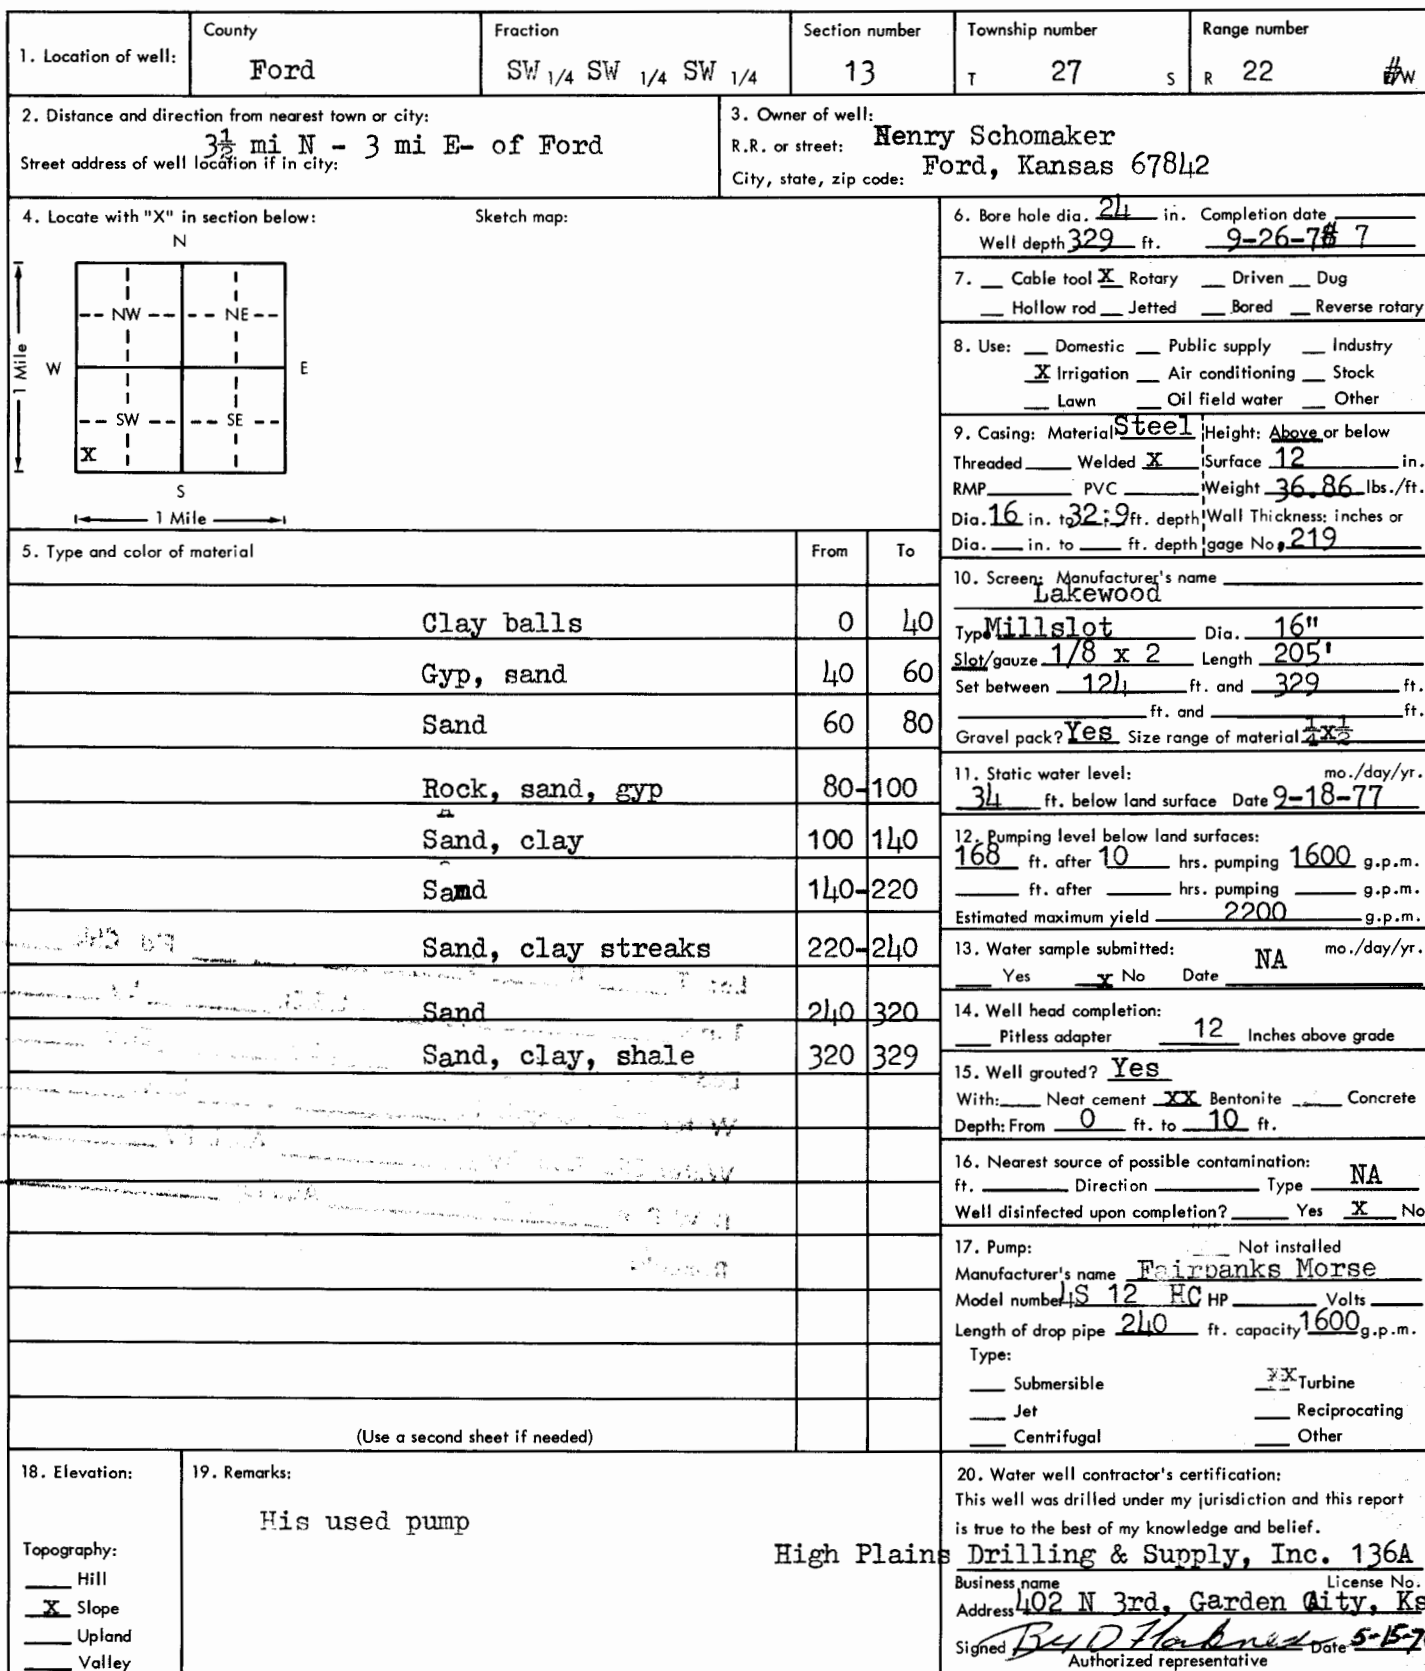 County Fraction Section number Township number Range number
1. Location of well: Ford SW 1/4 SW 1/4 SW 1/4 13 T 27 S R 22 W
2. Distance and direction from nearest town or city:
3½ mi N - 3 mi E- of Ford
Street address of well location if in city:
3. Owner of well:
R.R. or street: Henry Schomaker
City, state, zip code: Ford, Kansas 67842
4. Locate with "X" in section below: Sketch map:
N
NW NE
W E
1 Mile
SW SE
X
S
1 Mile
5. Type and color of material From To
Clay balls 0 40
Gyp, sand 40 60
Sand 60 80
Rock, sand, gyp 80-100
Sand, clay 100 140
Sand 140-220
Sand, clay streaks 220-240
Sand 240 320
Sand, clay, shale 320 329
(Use a second sheet if needed)
6. Bore hole dia. 24 in. Completion date
Well depth 329 ft. 9-26-77
7. Cable tool X Rotary Driven Dug
Hollow rod Jetted Bored Reverse rotary
8. Use: Domestic Public supply Industry
X Irrigation Air conditioning Stock
Lawn Oil field water Other
9. Casing: Material Steel Height: Above or below
Threaded Welded X Surface 12 in.
RMP PVC Weight 36.86 lbs./ft.
Dia. 16 in. to 32:9 ft. depth Wall Thickness: inches or
Dia. in. to ft. depth gage No. 219
10. Screen: Manufacturer's name
Lakewood
Type Millslot Dia. 16"
Slot/gauze 1/8 x 2 Length 205'
Set between 124 ft. and 329 ft.
ft. and ft.
Gravel pack? Yes Size range of material ¼x½
11. Static water level: mo./day/yr.
34 ft. below land surface Date 9-18-77
12. Pumping level below land surfaces:
168 ft. after 10 hrs. pumping 1600 g.p.m.
ft. after hrs. pumping g.p.m.
Estimated maximum yield 2200 g.p.m.
13. Water sample submitted: NA mo./day/yr.
Yes x No Date
14. Well head completion:
Pitless adapter 12 Inches above grade
15. Well grouted? Yes
With: Neat cement XX Bentonite Concrete
Depth: From 0 ft. to 10 ft.
16. Nearest source of possible contamination:
ft. Direction Type NA
Well disinfected upon completion? Yes X No
17. Pump: Not installed
Manufacturer's name Fairbanks Morse
Model number 4S 12 HC HP Volts
Length of drop pipe 240 ft. capacity 1600 g.p.m.
Type:
Submersible XX Turbine
Jet Reciprocating
Centrifugal Other
18. Elevation:
Topography:
Hill
X Slope
Upland
Valley
19. Remarks:
His used pump
20. Water well contractor's certification:
This well was drilled under my jurisdiction and this report
is true to the best of my knowledge and belief.
High Plains Drilling & Supply, Inc. 136A
Business name License No.
Address 402 N 3rd, Garden City, Ks
Signed By D Date 5-15-7
Authorized representative